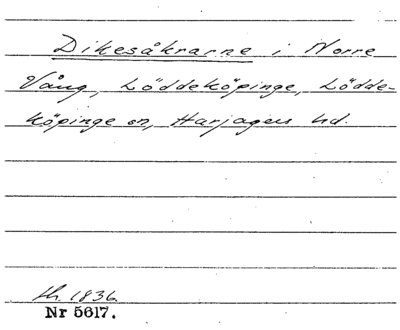 Dikesåkrarne i Norre
Vång, Löddeköpinge, Lödde-
köpinge sn, Harjagers hd.
Lh. 1836
Nr 5617.